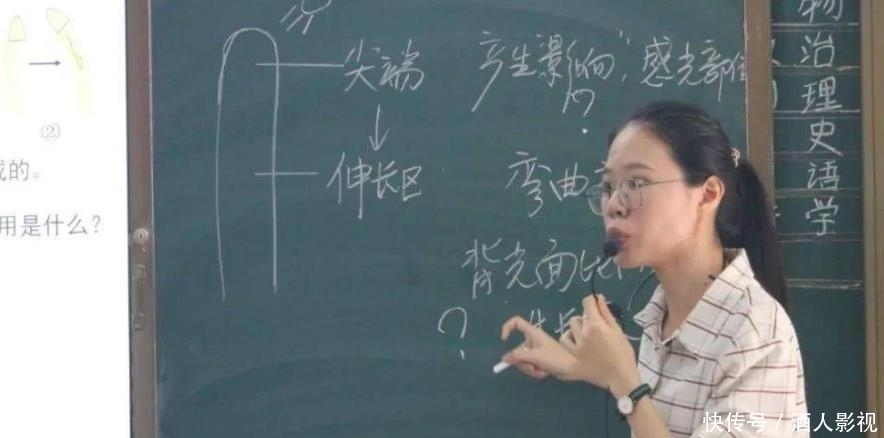 ②
成的。
用是什么？
尖端 产生"影响", 感光部位
?
伸长区 弯曲
背光面比
? 生长
物
治
理
史
语
学
快传号 / 酒人影视